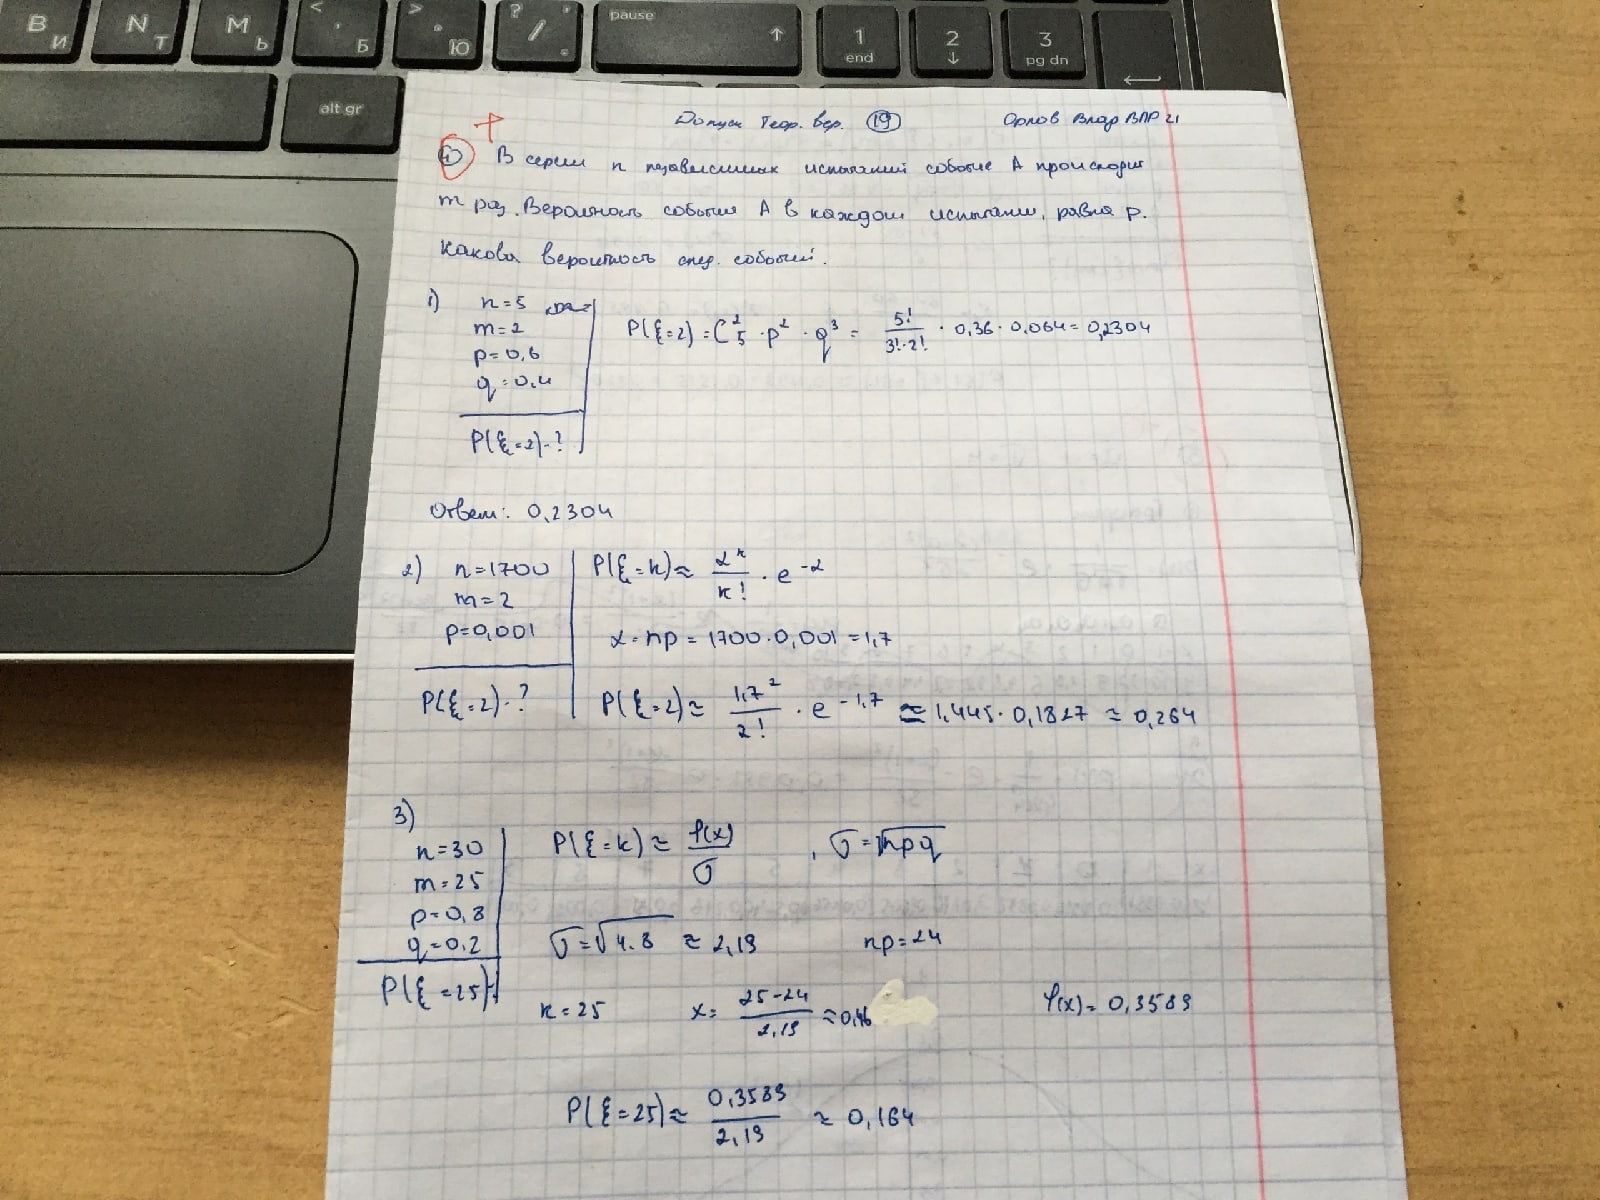 В И
N Т
M Ь
< , Б
> . Ю
? / , .
pause ↑
1 end
2 ↓
3 pg dn
alt gr
Допуск Теор. вер. 19 Орлов Влад ВПР 21
+
1 В серии n независимых испытаний событие А происходит
m раз. Вероятность события А в каждом испытании, равна p.
Какова вероятность след. событий.
1) n=5
m=2
p=0,6
q=0,4
P(ξ=2)-?
P(ξ=2)=C₅² · p² · q³ = 5!/(3!·2!) · 0,36 · 0,064 = 0,2304
Ответ: 0,2304
2) n=1700
m=2
p=0,001
P(ξ=2)-?
P(ξ=k)≈ λᵏ/k! · e^-λ
λ=np = 1700·0,001 = 1,7
P(ξ=2)≈ 1,7²/2! · e^-1,7 ≈ 1,445 · 0,1827 ≈ 0,264
3)
n=30
m=25
p=0,8
q=0,2
P(ξ=25)-
P(ξ=k)≈ φ(x)/σ , σ=√npq
σ=√4.8 ≈ 2,19 np=24
k=25 x= (25-24)/2,19 ≈0,46 φ(x)=0,3589
P(ξ=25)≈ 0,3589/2,19 ≈ 0,164